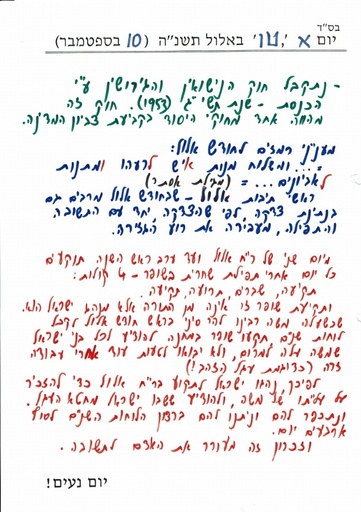 בס"ד
יום א', ט"ו באלול תשנ"ה (10 בספטמבר)
- נתקבל חוק הנישואין והגירושין ע"י
הכנסת - שנת תשי"ג (1953). חוק זה
מהווה אחד מחוקי היסוד בקביעת צביון המדינה.
מענייני רמזים לחודש אלול:
"...ומשלוח מנות איש לרעהו ומתנות
לאביונים..." = (מגילת אסתר)
ראשי תיבות אלול - שבחודש אלול מרבים גם
בנתינת צדקה, לפי שהצדקה, יחד עם התשובה
והתפילה, מעבירה את רוע הגזירה.
מיום שני של ר"ח אלול ועד ערב ראש השנה תוקעים
כל יום אחרי תפילת שחרית בשופר - 4 קולות:
תקיעה, שברים, תרועה, תקיעה.
ותקיעת שופר זו אינה מן התורה אלא מנהג ישראל הוא.
שכשעלה משה רבינו להר סיני בראש חודש אלול לקבל
לוחות שניים תקעו שופר במחנה להודיע לכל בני ישראל
שמשה עלה למרום, ולא יבואו לטעות עוד אחרי עבודה
זרה (כדוגמת עגל הזהב!)
לפיכך, נהגו ישראל לתקוע בר"ח אלול כדי להזכיר
על עלייתו של משה, ולהודיע ששבו ישראל מחטא העגל.
ונתכפר להם וניתנו להם ברצון הלוחות השניים לסוף
ארבעים יום.
וזכרון זה מעורר את האדם לתשובה.
יום נעים!